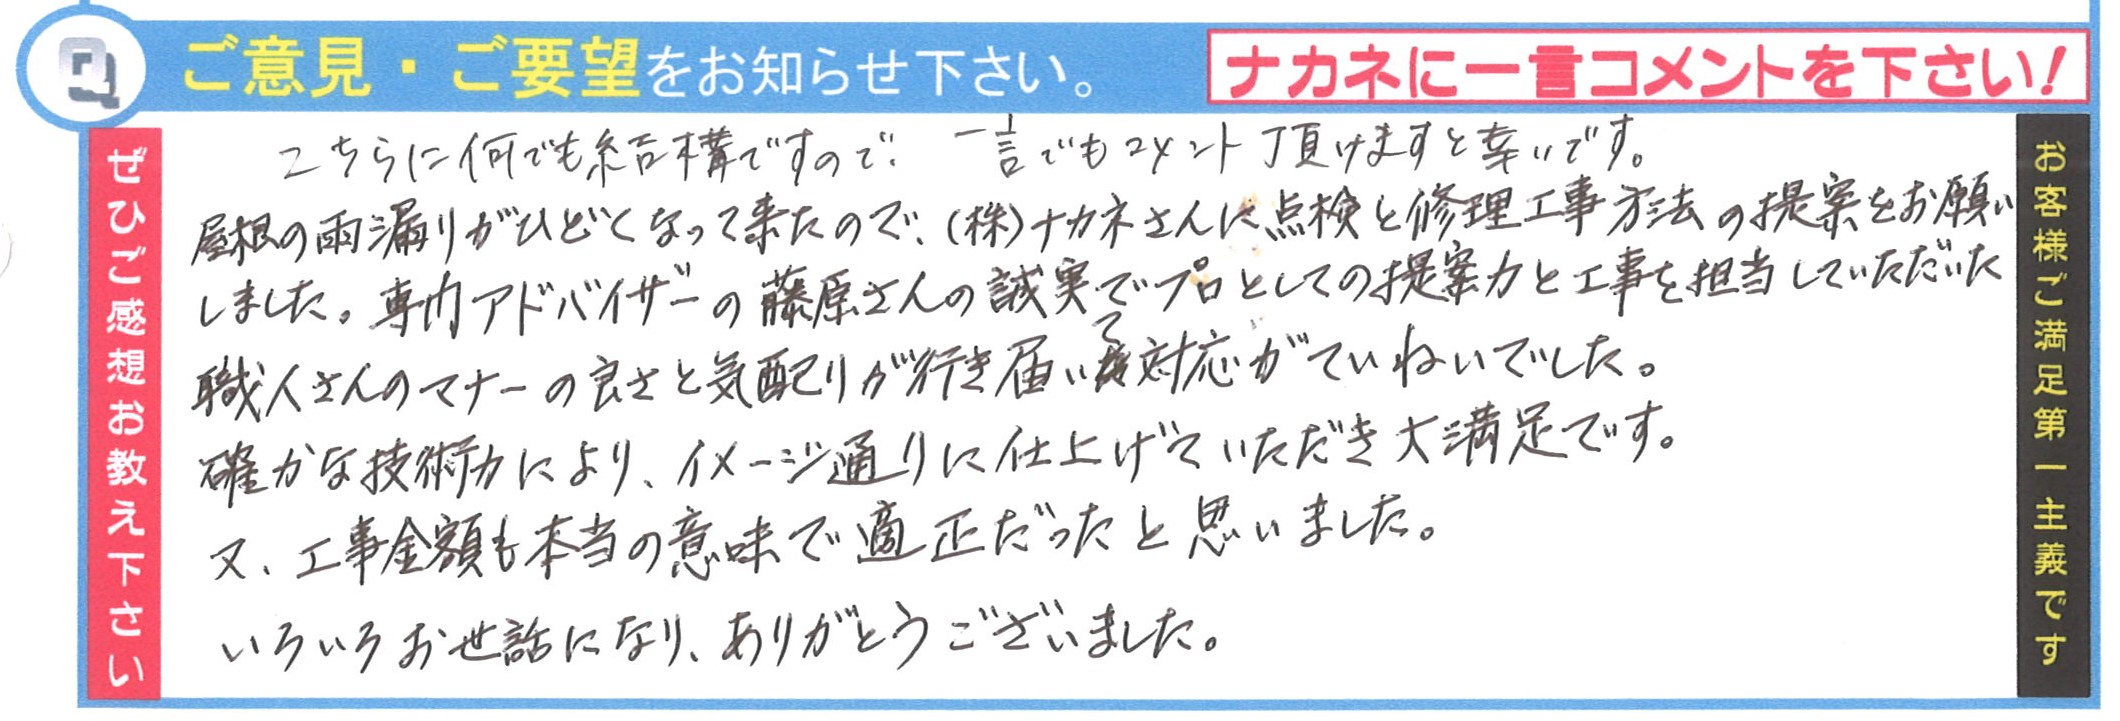 Q ご意見・ご要望をお知らせ下さい。
ナカネに一言コメントを下さい!
ぜひご感想お教え下さい
こちらに何でも結構ですので、一言でもコメント頂けますと幸いです。
屋根の雨漏りがひどくなって来たので、(株)ナカネさんに点検と修理工事方法の提案をお願い
しました。専門アドバイザーの藤原さんの誠実でプロとしての提案力と工事を担当していただいた
職人さんのマナーの良さと気配りが行き届いて対応がていねいでした。
確かな技術力により、イメージ通りに仕上げていただき大満足です。
又、工事金額も本当の意味で適正だったと思いました。
いろいろお世話になり、ありがとうございました。
お客様ご満足第一主義です